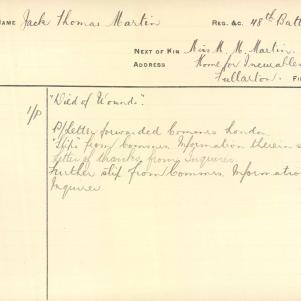 NAME Jack Thomas Martin REG. &C. 48th Batt
NEXT OF KIN Miss M. M. Martin.
ADDRESS Home for Incurables
Fullarton. FI
1/P "Died of Wounds".
P/Letter forwarded Commrs London
"Slip" from Commrs Information therein s
letter of thanks from Inquirer
Further slip from Commrs Information
Inquirer